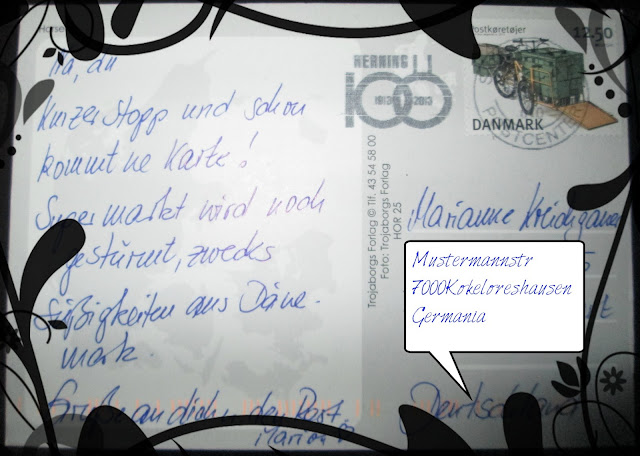 Horsen
Postkøretøjer
12.50
HERNING
100
1913 2013
DANMARK
POSTCENTER
Na, du
kurzer Stopp und schon
kommt ne Karte!
Supermarkt wird noch
gestürmt, zwecks
Süßigkeiten aus Däne-
mark.
Grüße an dich, der Rort
Marion
Trojaborgs Forlag © Tlf. 43 54 58 00
Foto: Trojaborgs Forlag
HOR 25
Marianne
Mustermannstr
7000Kokeloreshausen
Germania
Deutschland